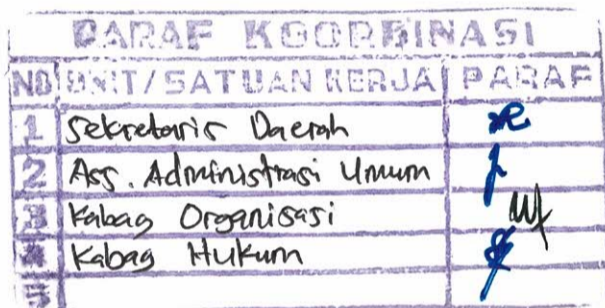 PARAF KOORDINASI
NO UNIT/SATUAN KERJA PARAF
1 Sekretaris Daerah
2 Ass. Administrasi Umum
3 Kabag Organisasi
4 Kabag Hukum
5